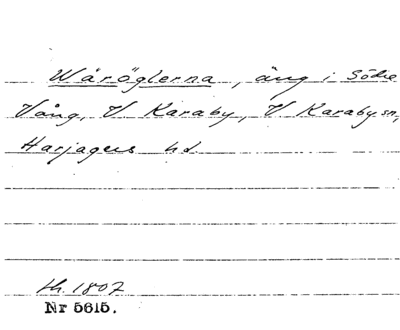 Wäröglerna, äng i Södre
Vång, V Karaby, V. Karaby sn,
Harjagers hd.
th. 1807
Nr 5615.